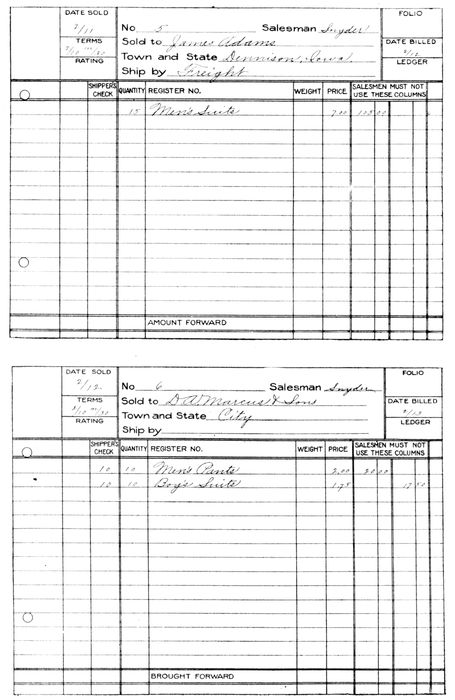 DATE SOLD
2/11
TERMS
2/10 m/30
RATING
No 5 Salesman Snyder
Sold to James Adams
Town and State Dennison, Iowa
Ship by Freight
FOLIO
DATE BILLED
2/12
LEDGER
SHIPPER'S CHECK QUANTITY REGISTER NO. WEIGHT PRICE SALESMEN MUST NOT USE THESE COLUMNS
15 Men's Suits 7.00 105 00
AMOUNT FORWARD
DATE SOLD
2/12
TERMS
2/10 m/30
RATING
No 6 Salesman Snyder
Sold to D.W. Marcus & Sons
Town and State City
Ship by
FOLIO
DATE BILLED
LEDGER
SHIPPER'S CHECK QUANTITY REGISTER NO. WEIGHT PRICE SALESMEN MUST NOT USE THESE COLUMNS
10 10 Men's Pants 2.00 20 00
10 10 Boy's Suits 1.75 17 50
BROUGHT FORWARD